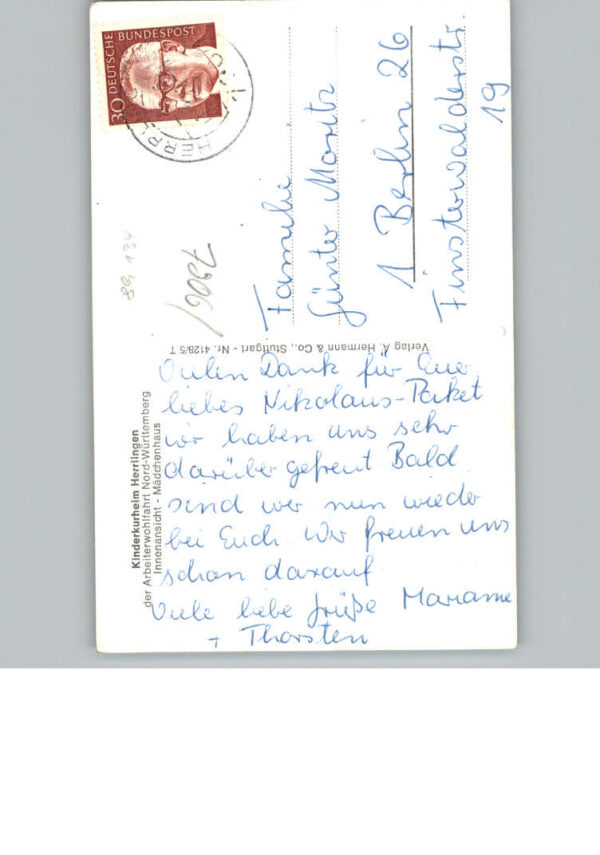 30 DEUTSCHE BUNDESPOST
HERRL
7906/
89, 134
Familie
Günter Moritz
1 Berlin 26
Finsterwalderstr.
19
Verlag A. Hermann & Co., Stuttgart - Nr. 4128/5 T
Kinderkurheim Herrlingen
der Arbeiterwohlfahrt Nord-Württemberg
Innenansicht - Mädchenhaus
Vielen Dank für Euer
liebes Nikolaus-Paket
wir haben uns sehr
darüber gefreut Bald
sind wir nun wieder
bei Euch. Wir freuen uns
schon darauf.
Viele liebe Grüße Marianne
+ Thorsten